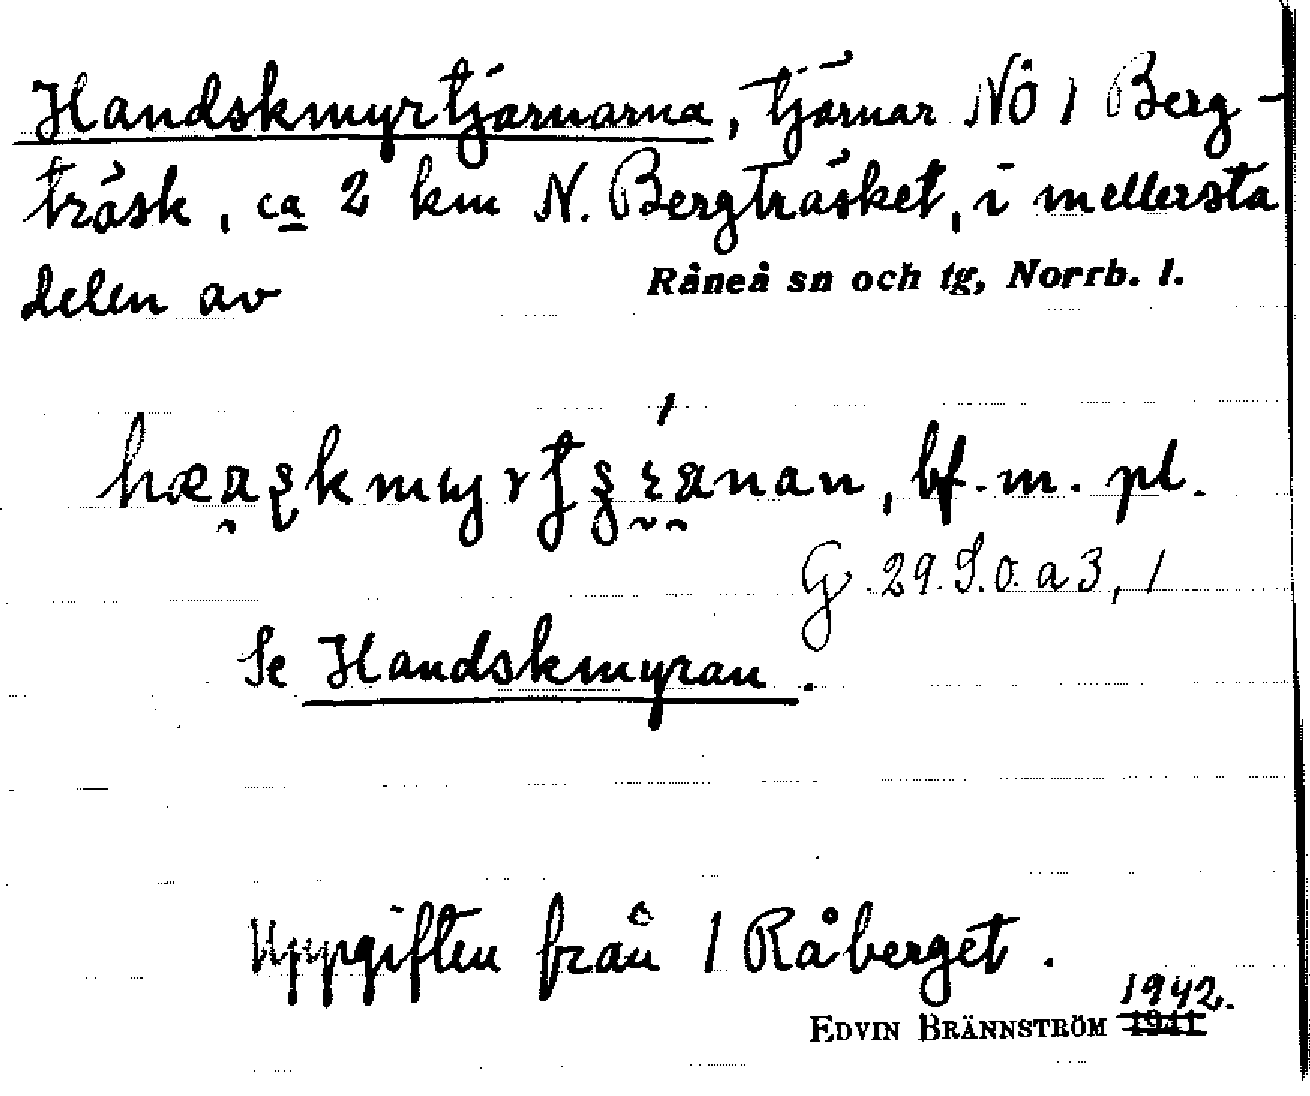 Handskmyrtjärnarna, tjärnar NÖ 1 Berg-
träsk, ca 2 km N. Bergträsket, i mellersta
delen av Råneå sn och tg, Norrb. l.
bf. m. pl.
G. 29. S. o. a 3, 1
Se Handskmyran.
Uppgiften från 1 Råberget.
1942.
EDVIN BRÄNNSTRÖM 1941